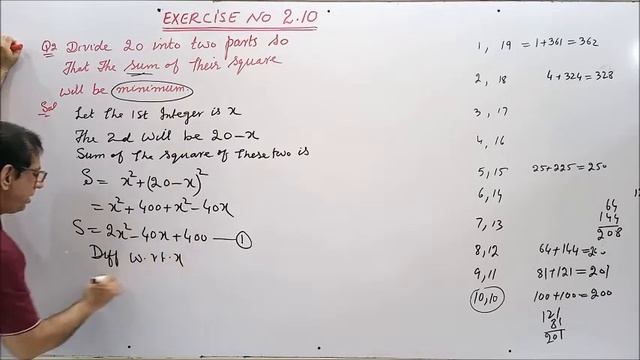 EXERCISE NO 2.10
Q2 Divide 20 into two parts so
That The sum of Their square
will be minimum
Sol Let The 1st Integer is x
The 2d will be 20-x
Sum of The square of These two is
S = x² + (20-x)²
= x² + 400 + x² - 40x
S = 2x² - 40x + 400 — ①
Diff w.r.t.x
1, 19 = 1+361 = 362
2, 18 4+324 = 328
3, 17
4, 16
5, 15 25+225 = 250
6, 14
7, 13
64
144
208
8, 12 64+144 =
9, 11 81+121 = 201
10,10 100+100 = 200
121
81
201